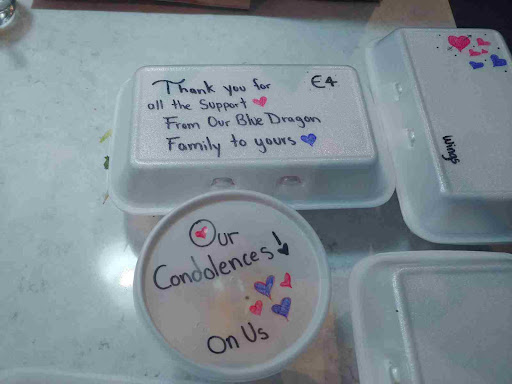 Thank you for
all the Support
From Our Blue Dragon
Family to yours
E4
wings
Our
Condolences!
On Us